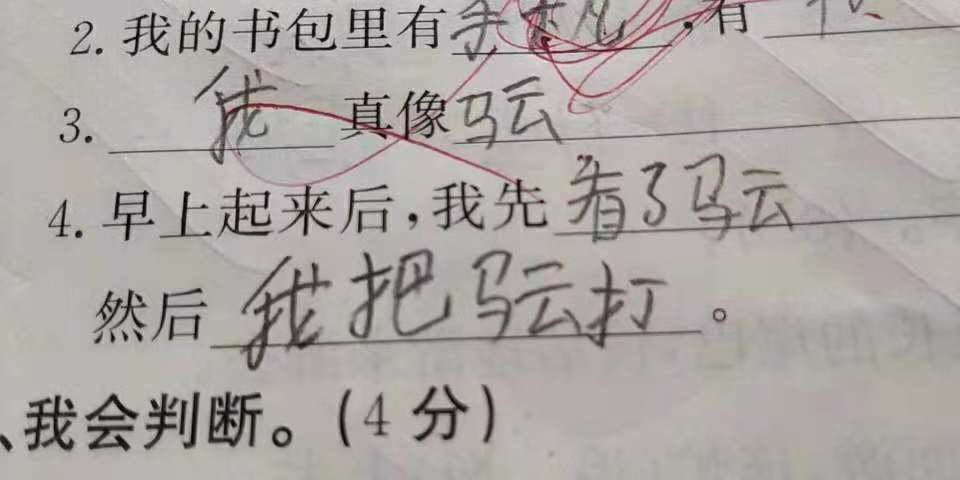 2. 我的书包里有手机,有
3. 我真像马云
4. 早上起来后,我先看了马云
然后我把马云打。
、我会判断。(4分)